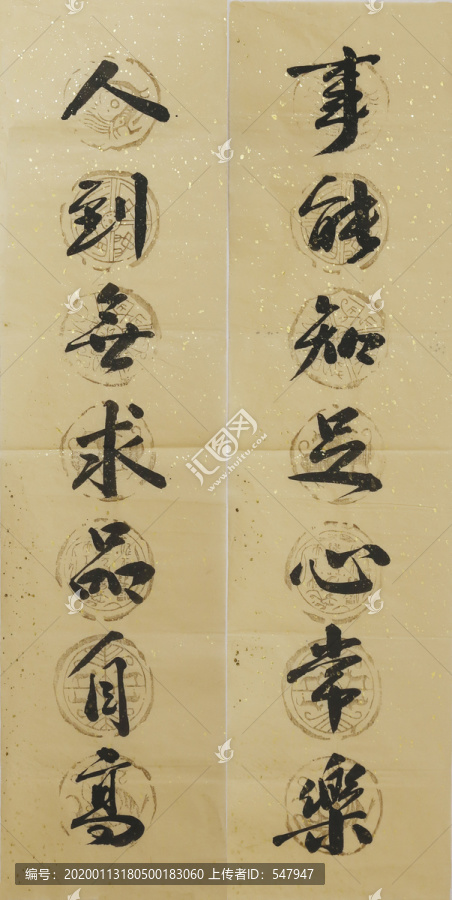 事能知足心常樂
人到無求品自高
汇图网
www.huitu.com
编号：20200113180500183060 上传者ID：547947